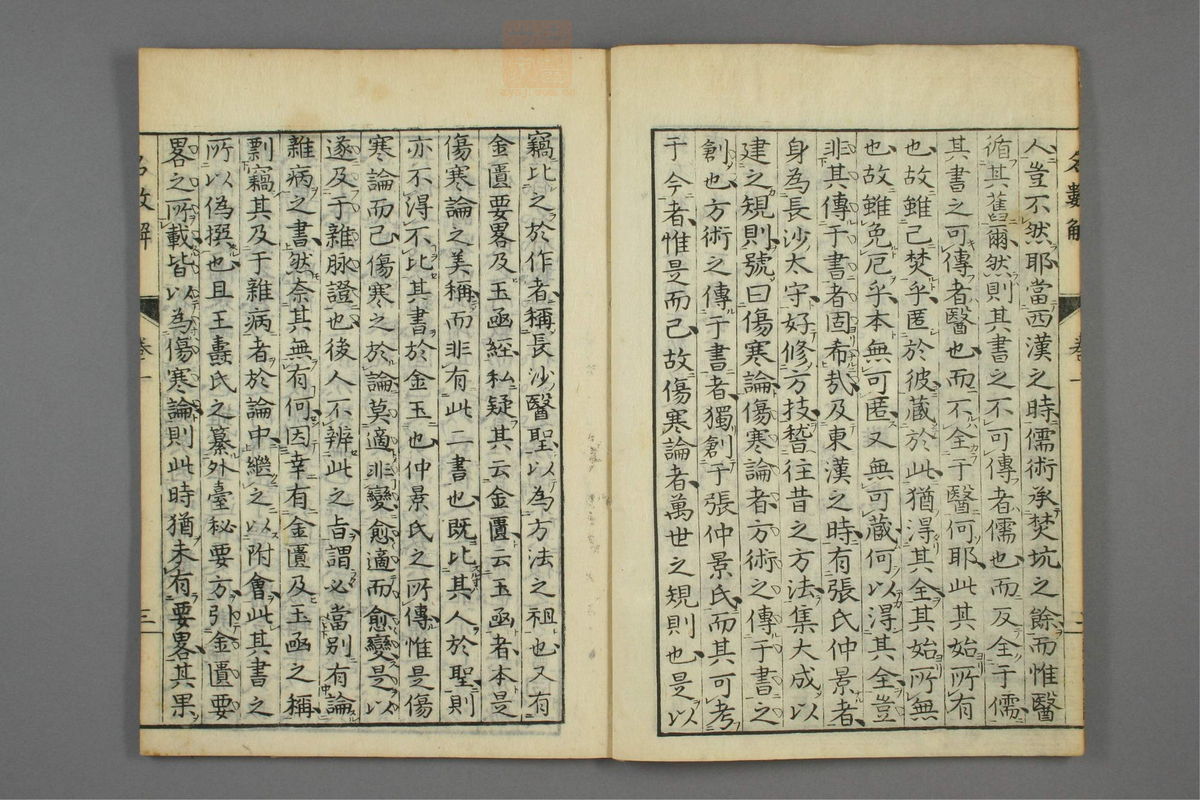 人豈不然耶當西漢之時儒術承焚坑之餘而惟醫
循其舊爾然則其書之不可傳者儒也而反全于儒
其書之可傳者醫也而不全于醫何耶此其始所有
也故雖已焚乎匿於彼藏於此猶得其全其始所無
也故雖免厄乎本無可匿又無可藏何以得其全豈
非其傳于書者固希哉及東漢之時有張氏仲景者
身為長沙太守好修方技嵇往昔之方法集大成以
建之規則號曰傷寒論傷寒論者方術之傳于書之
創也方術之傳于書者獨創于張仲景氏而其可考
于今者惟是而已故傷寒論者萬世之規則也是以
竊比之於作者稱長沙醫聖以為方法之祖也又有
金匱要畧及玉函經私疑其云金匱云玉函者本是
傷寒論之美稱而非有此二書也既比其人於聖則
亦不得不比其書於金玉也仲景氏之所傳惟是傷
寒論而已傷寒之於論莫適非變愈適而愈變是以
遂及于雜脉證也後人不辨此之旨謂必當別有論
雜病之書然奈其無有何因幸有金匱及玉函之稱
剽竊其及于雜病者於論中繼之以附會此其書之
所以偽撰也且王燾氏之纂外臺秘要方引金匱要
畧之所載皆以為傷寒論則此時猶未有要畧其果
名數解
卷一
二
三